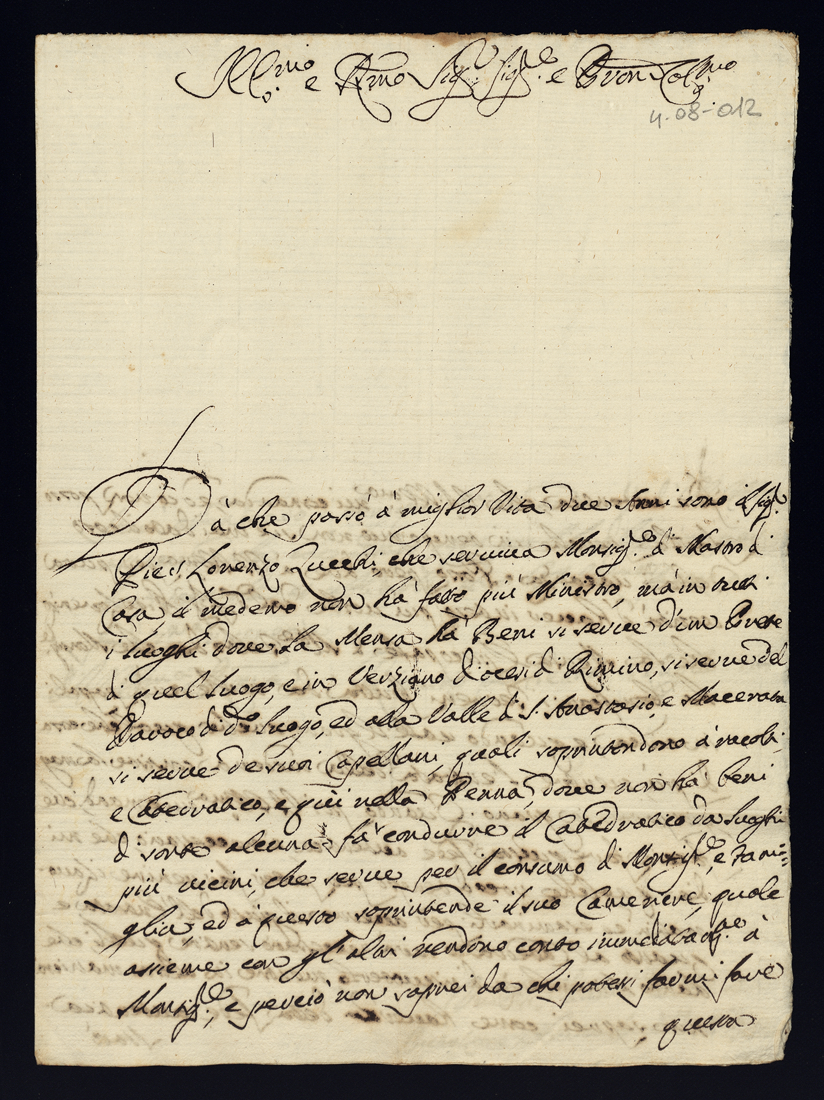 Ill.mo e R.mo Sig.r Sig.re e Pron Col.mo
4.08-012
Dà che passò à miglior Vita due Anni sono il Sig.r
Lorenzo Zucchi, che serviva Monsig.re di Mastro di
Casa, il medemo non hà fatto più Ministro, mà in tutti
i luoghi dove la Mensa hà Beni si serve d'un Prete
di quel luogo, e in Verziano diocesi di Rimino, si serve del
di d.o luogo, ed alla Valle di S. Anastasio, e Macerata
si serve de suoi Capellani, quali soprintendono à racolti,
e Catedratico, e quì nella Penna, dove non hà beni
di sorte alcuna fà condurre il Catedratico da luoghi
più vicini, che serve per il consumo di Monsig.re, e Fami=
glia, ed à questo soprintende il suo Cameriere, quale
assieme con gl'altri rendono conto immediatam.te à
Monsig.re, e perciò non saprei da chi potessi farmi fare
questa